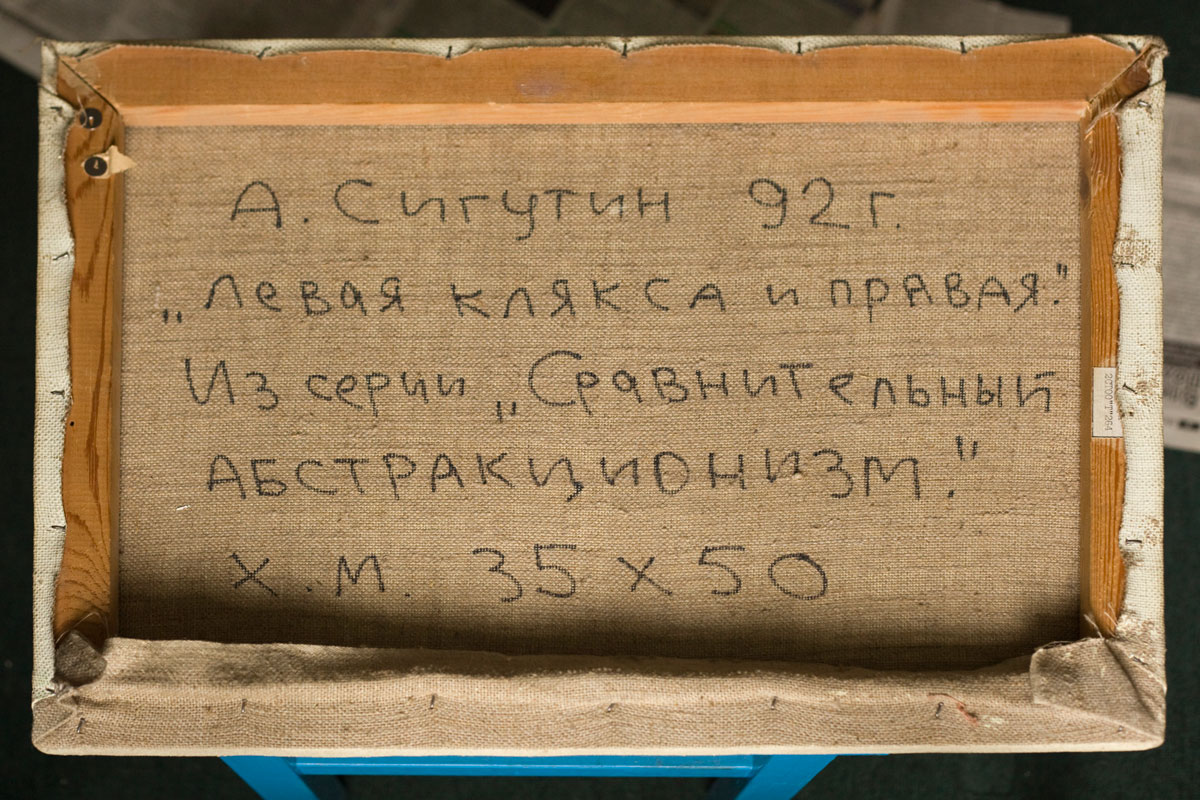 А. Сигутин 92 г.
„Левая клякса и правая."
Из серии „Сравнительный
абстракционизм."
х.м. 35 х 50